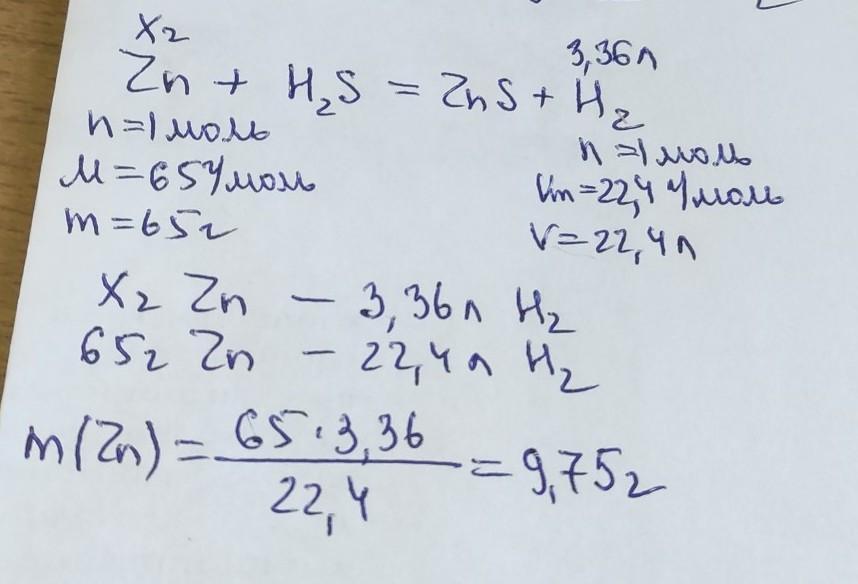 x г 3,36 л
Zn + H₂S = ZnS + H₂
n = 1 моль n = 1 моль
M = 65 г/моль Vm = 22,4 л/моль
m = 65 г V = 22,4 л
x г Zn – 3,36 л H₂
65 г Zn – 22,4 л H₂
m(Zn) = 65 · 3,36 / 22,4 = 9,75 г